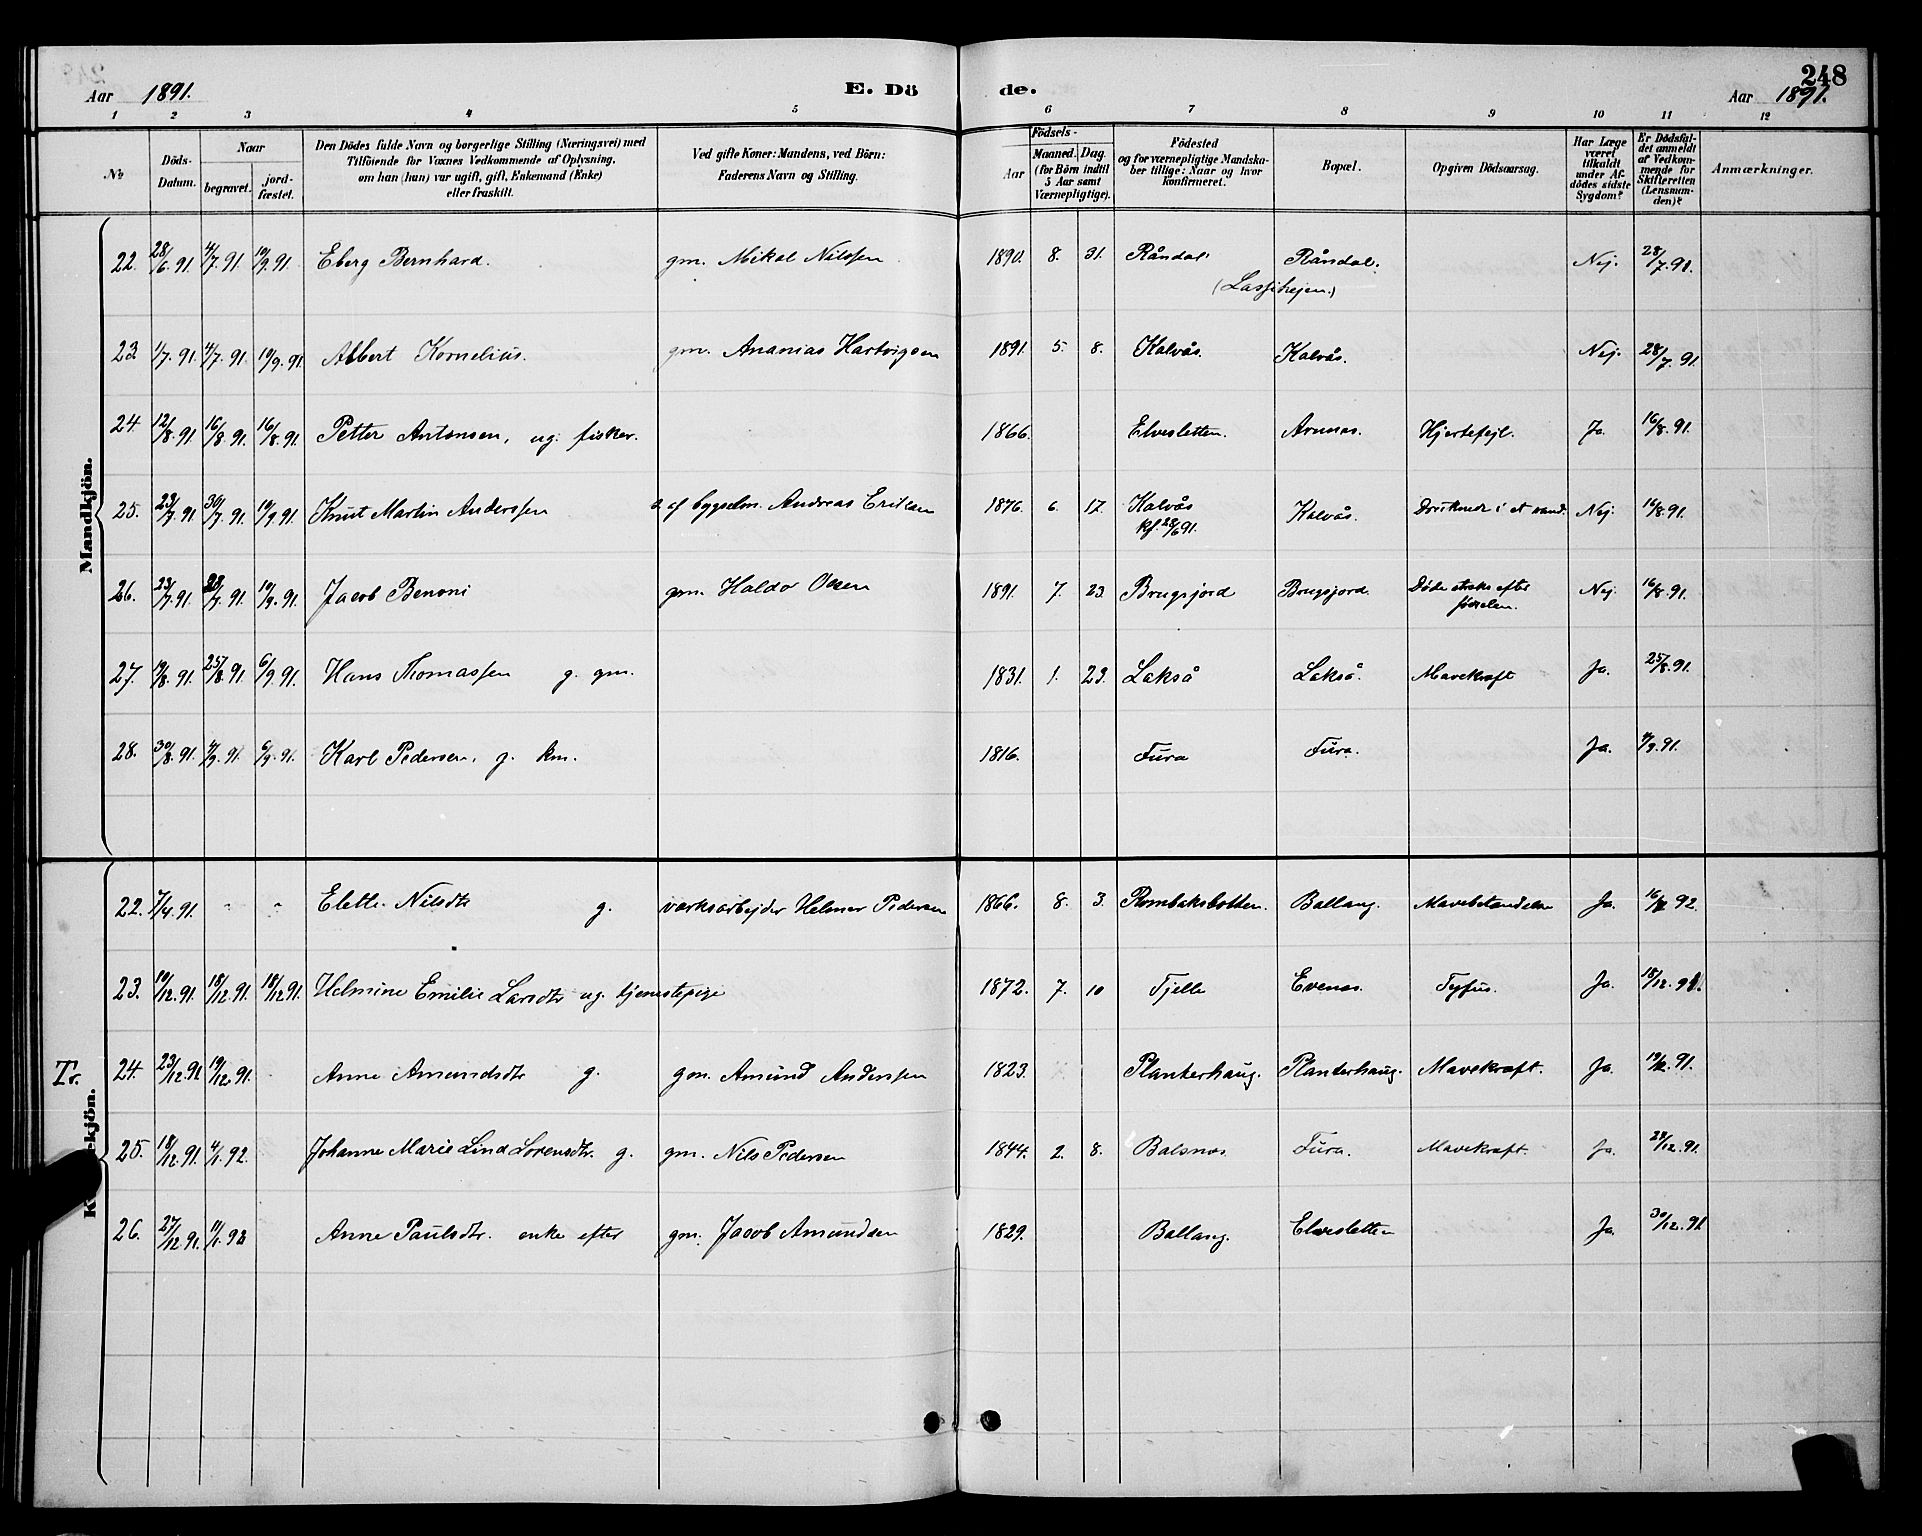 248
Aar 1891. E. Dö de. Aar 1891.
1 2 3 4 5 6 7 8 9 10 11 12
No
Döds-Datum.
Naar
begravet.
jord-fæstet.
Den Dödes fulde Navn og borgerlige Stilling (Næringsvei) med
Tilföiende for Voxnes Vedkommende af Oplysning,
om han (hun) var ugift, gift, Enkemand (Enke)
eller fraskilt.
Ved gifte Koner: Mandens, ved Börn:
Faderens Navn og Stilling.
Födsels-
Aar
Maaned. Dag
(for Börn indtil
5 Aar samt
Værnepligtige).
Födested
og for værnepligtige Mandska-
ber tillige: Naar og hvor
konfirmeret.
Bopæl.
Opgiven Dödsaarsag.
Har Læge
været
tilkaldt
under Af-
dödes sidste
Sygdom?
Er Dödsfal-
det anmeldt
af Vedkom-
mende for
Skifteretten
(Lensman-
den)?
Anmærkninger.
Mandkjön.
22. 28/6.91 4/7.91 19/9.91 Eberg Bernhard. gm. Mikal Nilssen 1890. 8. 31. Råndal. Råndal. Nej. 28/7.91.
23. 1/7.91. 4/7.91 19/9.91 Albert Kornelius. gm. Ananias Hartvigsen 1891. 5. 8. Kalvås. Kalvås. Nej. 28/7.91
24. 12/8.91 16/8.91. 16/8.91 Petter Antonsen, ug. fisker. 1866. Elvesletten. Arnnes. Hjertefejl. Ja. 16/8.91.
25. 23/7.91 30/7.91 19/9.91. Knut Martin Anderssen af bygselm. Andreas Eriksen 1876. 6. 17. Kalvås Kalvås. Druknede i et vand. Nej. 16/8.91.
kf. 28/6 91.
26. 23/7.91 28/7.91 19/9.91. Jacob Benoni gm. Haldo Olsen 1891. 7. 23. Brugsjord Brugsjord. Døde straks efter Nej. 16/8.91.
fødselen.
27. 19/8.91. 25/8.91 6/9.91. Hans Thomassen g. gm. 1831. 1. 23. Lakså Lakså. Mavekræft Ja. 25/8.91.
28. 30/8.91 4/9.91 6/9.91. Karl Pedersen, g. km. 1816. Fura Fura. Ja. 4/9.91.
Tr.
22. 7/4.91. - - Elette Nilsdtr g. værksarbejder Helmer Pedersen 1866. 8. 3. Rombaksbotten. Ballang. Mavebetændelse Ja. 92.
23. 10/12.91. 18/12.91 18/12 91 Helmine Emilie Larsdtr ug. tjenestepige 1872. 7. 10 Tjelle Evenes. Tyfus. Ja. 18/12.91.
24. 23/12.91 19/12.91. Anne Amundsdtr g. gm. Amund Anderssen 1823. Planterhaug. Planterhaug. Mavekræft. Ja. 91.
25. 18/12.91. 4/1.92. Johanne Marie Lind Lorensdtr. g. gm. Nils Pedersen 1844. 2. 8. Balsnes. Fura. Mavekræft. Ja. 24/12.91.
26. 27/12.91. Anne Paulsdtr. enke efter gm. Jacob Amundsen 1829. Ballang. Elvesletten Ja. 30/12.91